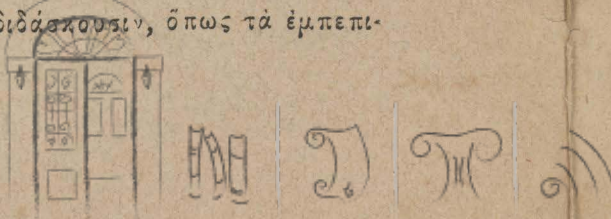 διδάσκουσιν, ὅπως τὰ ἐμπεπι-